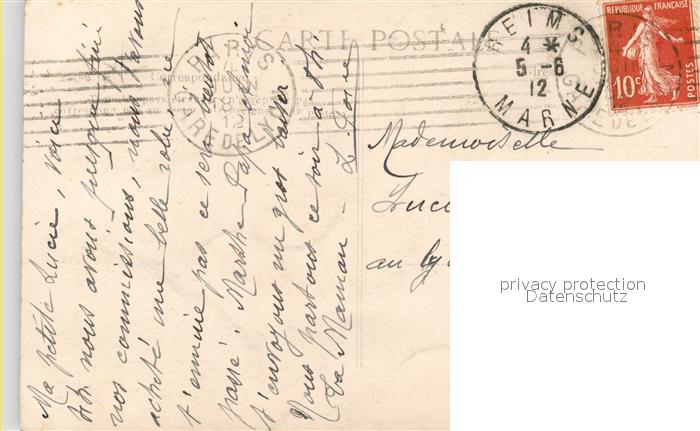 CARTE POSTALE
Correspondance
REIMS
4 *
5 - 6
12
MARNE
PARIS
12
GARE DE L'
REPUBLIQUE FRANÇAISE
10c
POSTES
Mademoiselle
Luci
au ly
privacy protection
Datenschutz
Ma petite Lucie, voici
nous avons presque fini
nos commissions, nous t'avons
acheté une belle robe, ne
t'ennuie pas ce sera bientôt
passé. Marthe Papa et moi
t'envoyons un gros baiser
Nous partons ce soir à
Ta Maman - L.